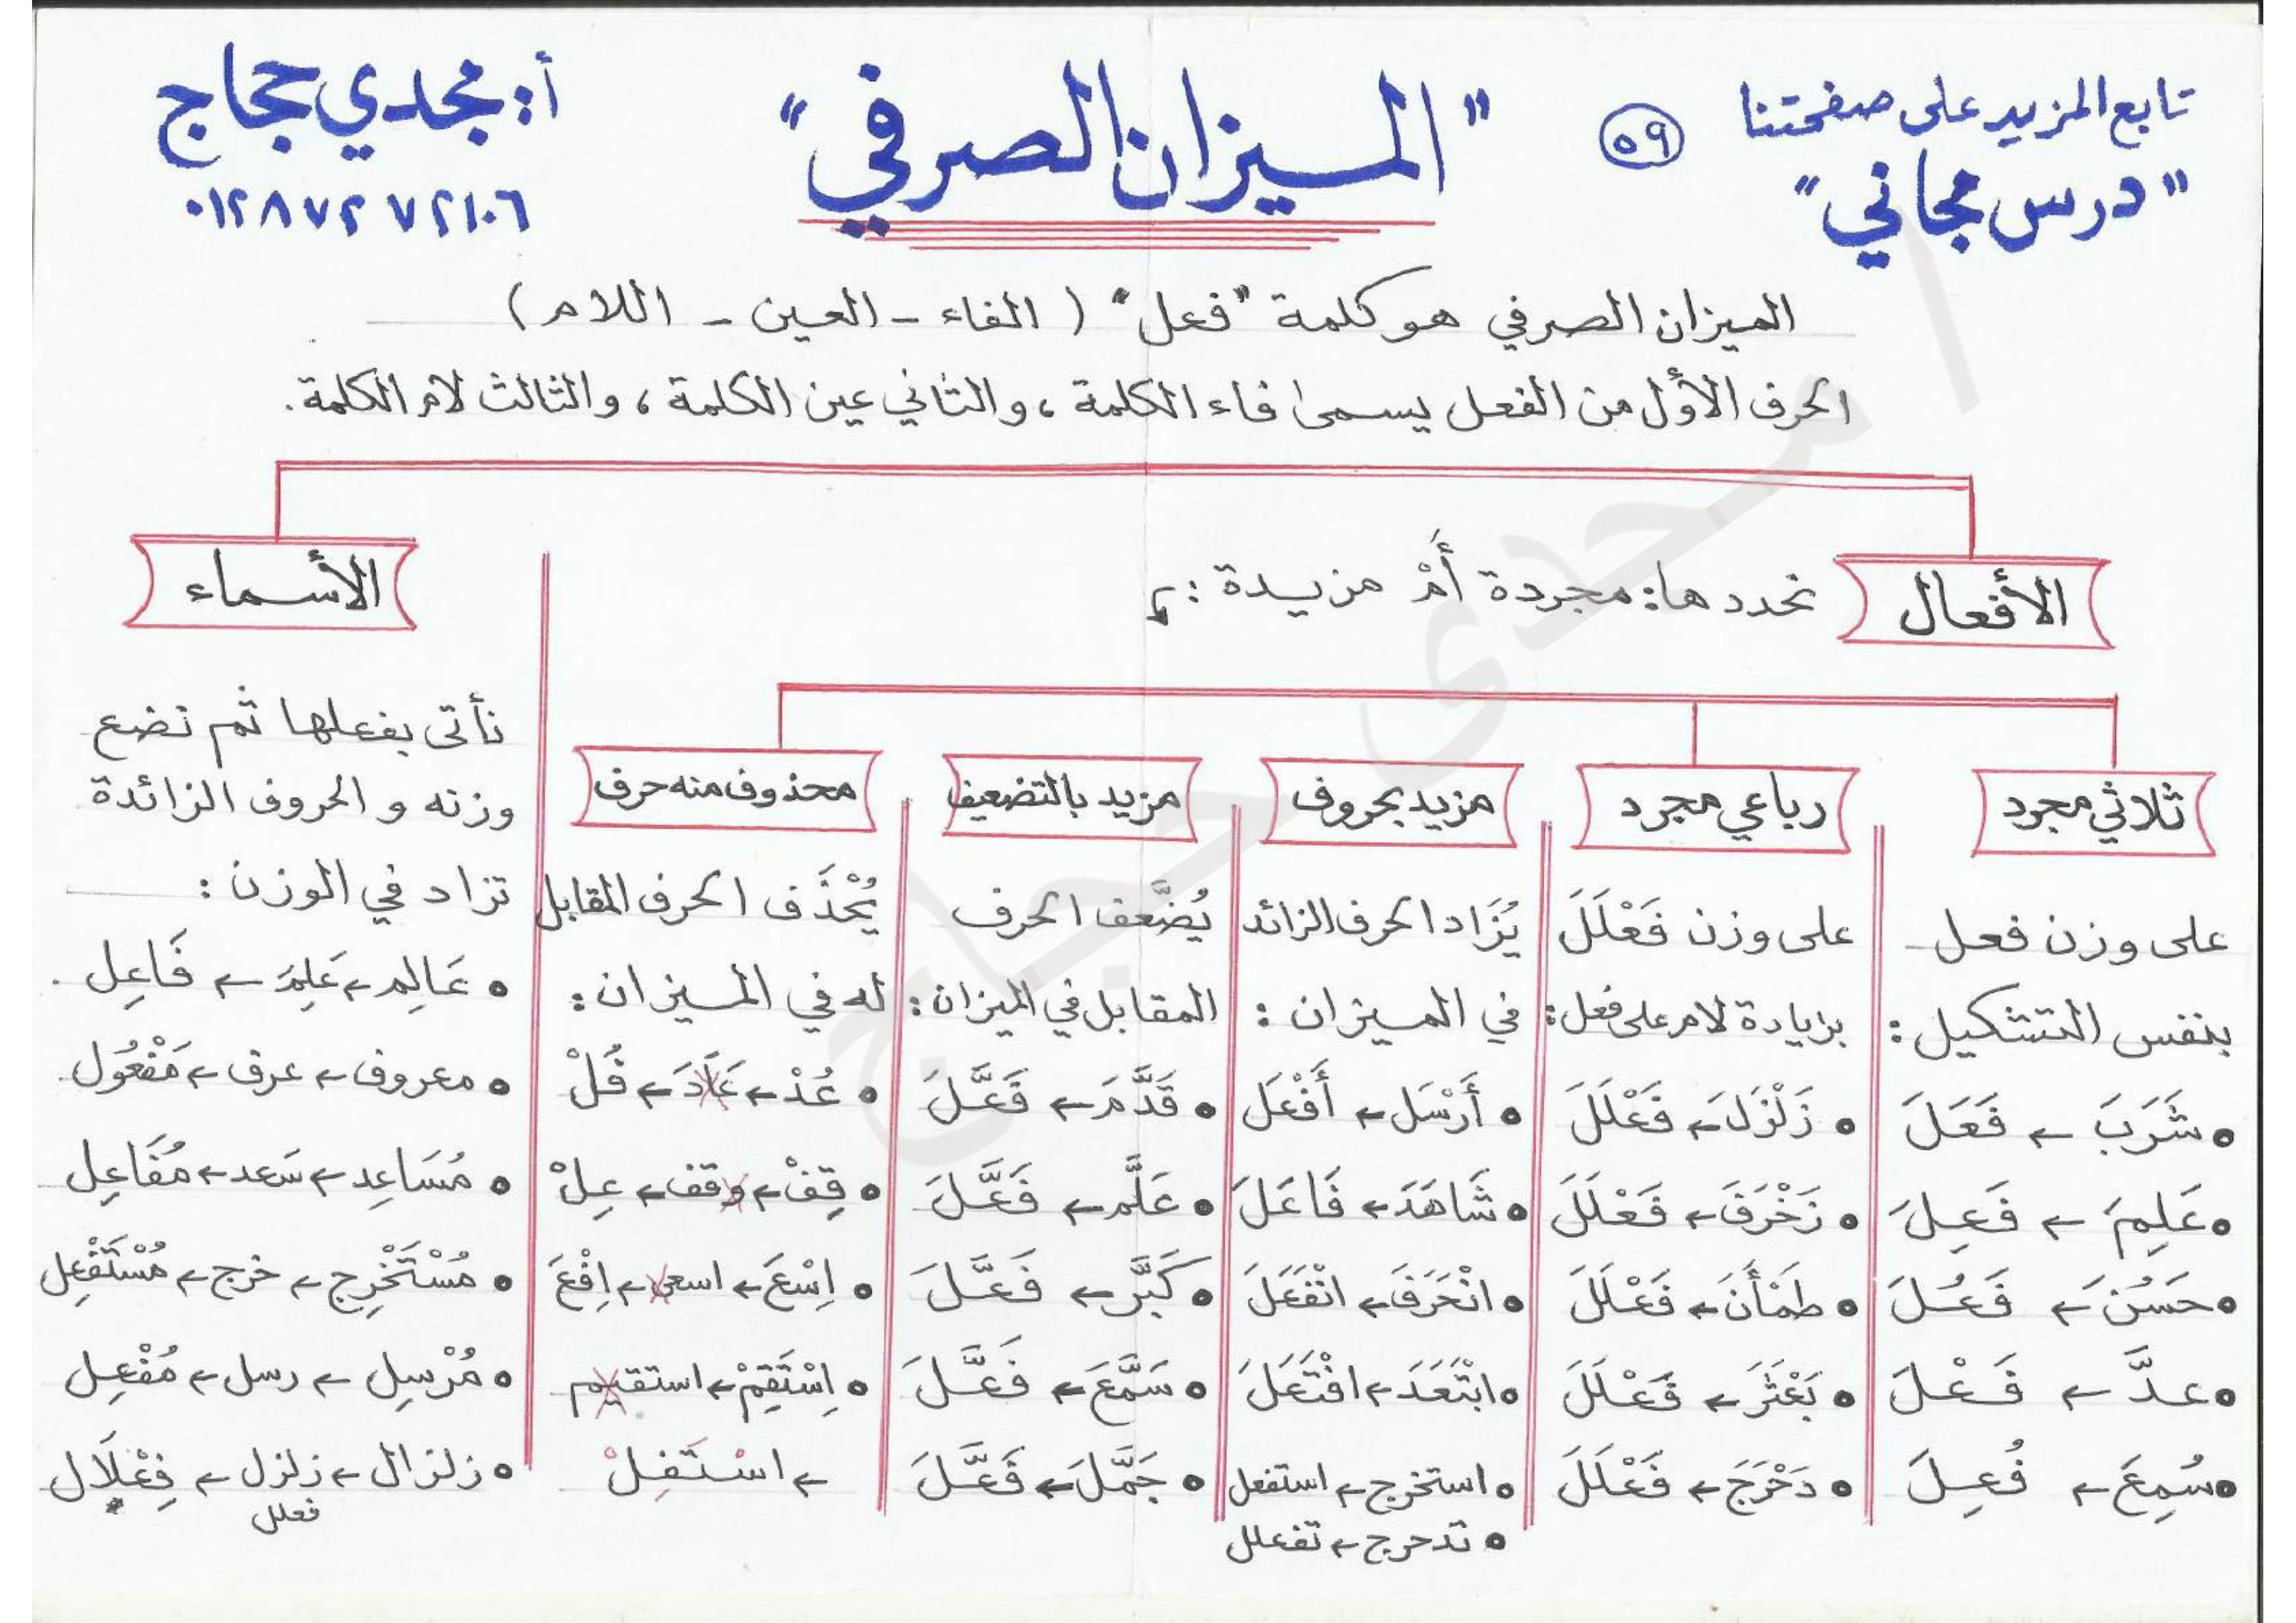 تابع المزيد على صفحتنا
"درس مجاني"
٥٩
"الميزان الصرفي"
أ: مجدي حجاج
٠١٢٨٧٢٧٢١٠٦
الميزان الصرفي هو كلمة "فعل" (الفاء - العين - اللام)
الحرف الأول من الفعل يسمى فاء الكلمة، والثاني عين الكلمة، والثالث لام الكلمة.
الأفعال
نحددها: مجردة أَمْ مزيدة:
ثلاثي مجرد
على وزن فعل
بنفس التشكيل:
• شَرَبَ ← فَعَلَ
• عَلِمَ ← فَعِلَ
• حَسُنَ ← فَعُلَ
• عدَّ ← فَعْلَ
• سُمِعَ ← فُعِلَ
رباعي مجرد
على وزن فَعْلَلَ
بزيادة لام على فعل:
• زَلْزَلَ ← فَعْلَلَ
• زَخْرَفَ ← فَعْلَلَ
• طَمْأَنَ ← فَعْلَلَ
• بَعْثَرَ ← فَعْلَلَ
• دَحْرَجَ ← فَعْلَلَ
مزيد بحروف
يُزَاد الحرف الزائد
في الميزان:
• أَرْسَل ← أَفْعَل
• شَاهَدَ ← فَاعَلَ
• انْحَرَفَ ← انْفَعَلَ
• ابْتَعَدَ ← افْتَعَلَ
• استخرج ← استفعل
• تدحرج ← تفعلل
مزيد بالتضعيف
يُضَّعف الحرف
المقابل في الميزان:
• قَدَّمَ ← فَعَّلَ
• عَلَّم ← فَعَّلَ
• كَبَّر ← فَعَّلَ
• سَمَّعَ ← فَعَّلَ
• جَمَّلَ ← فَعَّلَ
محذوف منه حرف
يُحْذَف الحرف المقابل
له في الميزان:
• عُدْ ← عَادَ ← فُلْ
• قِفْ ← وقف ← عِلْ
• اِسْعَ ← اسعى ← اِفْعَ
• اِسْتَقِمْ ← استقيم
← اسْتَفِلْ
الأسماء
نأتى بفعلها ثم نضع
وزنه و الحروف الزائدة
تزاد في الوزن:
• عَالِم ← عَلِمَ ← فَاعِل.
• معروف ← عرف ← مَفْعُول.
• مُسَاعِد ← سَعد ← مُفَاعِل
• مُسْتَخْرِج ← خرج ← مُسْتَفْعِل
• مُرْسِل ← رسل ← مُفْعِل
• زلزال ← زلزل ← فِعْلَال
فعلل
أ/ مجدى حجاج